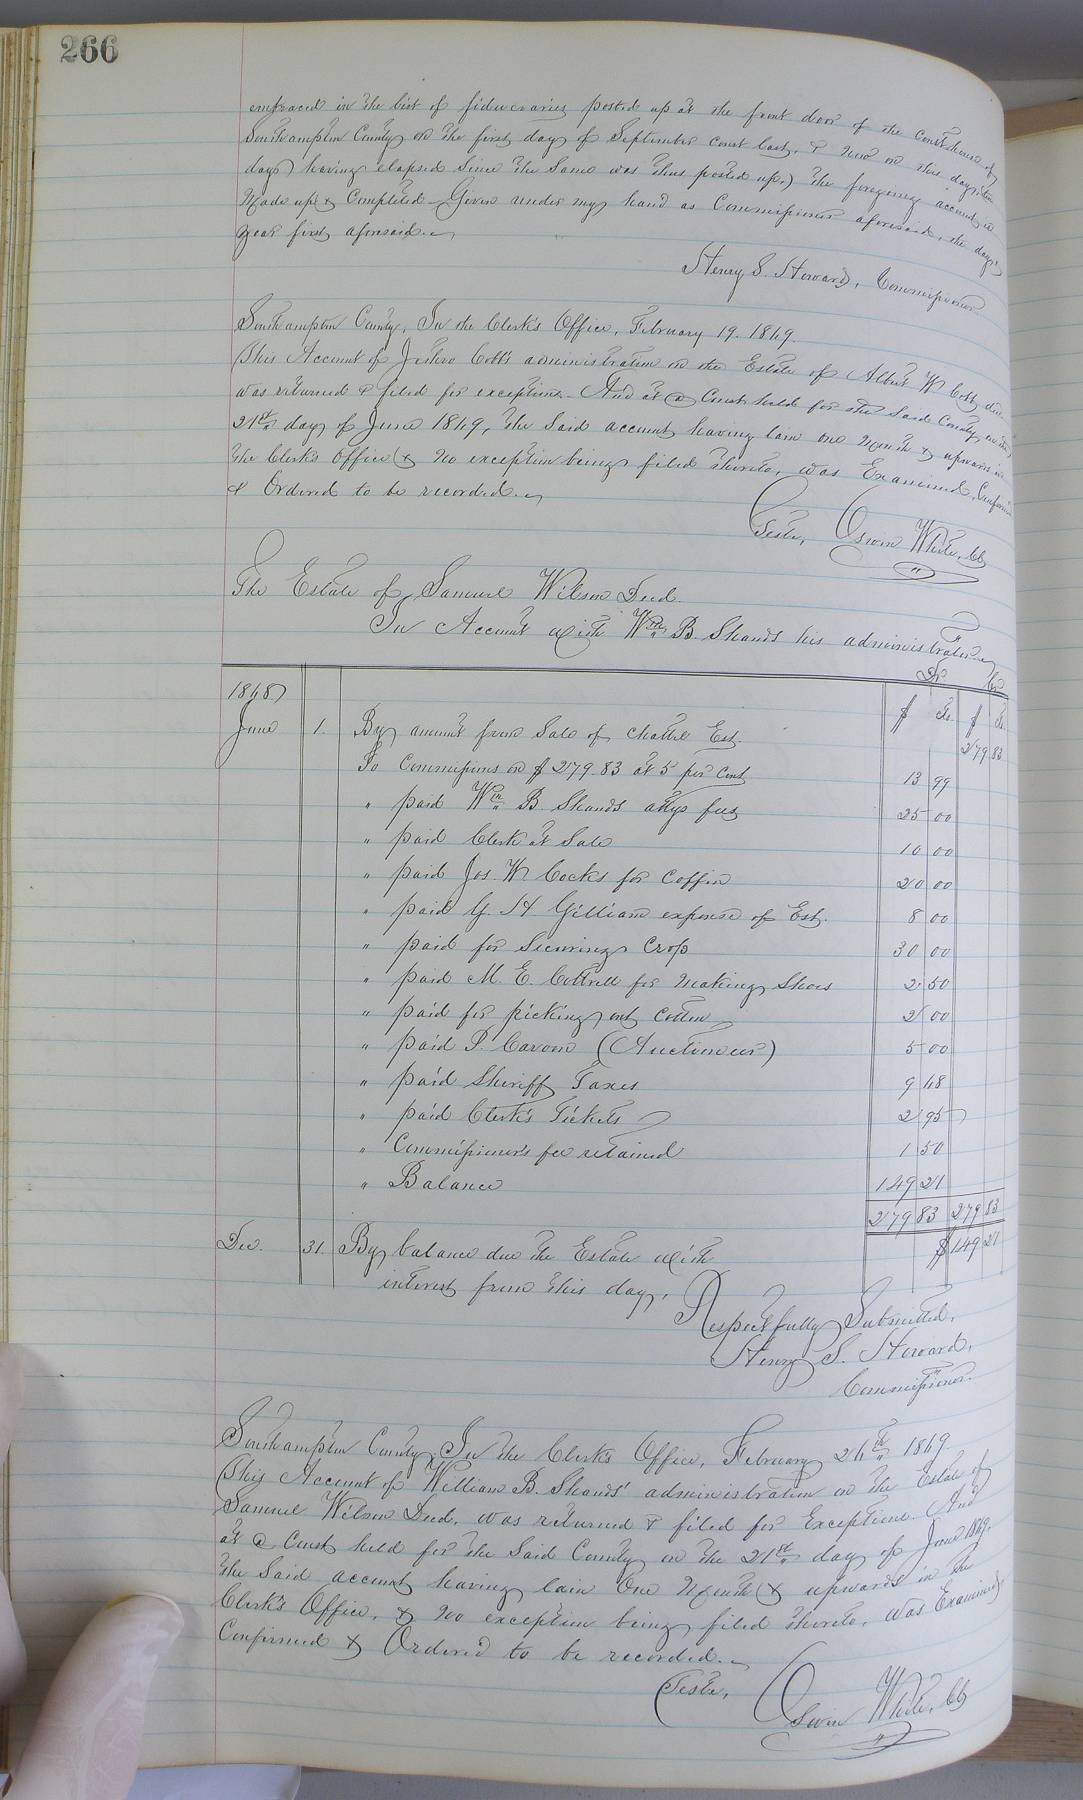 266
embraced in the list of fiduciaries posted up at the front door of the Courthouse of
Southampton County on the first day of September court last, & now on this day, (ten
days having elapsed since the same was thus posted up,) the foregoing account is
Made up & Completed. Given under my hand as Commissioner aforesaid, the day &
year first aforesaid.
Henry S. Howard, Commissioner
Southampton County, In the Clerk's Office, February 19. 1869.
This Account of Cobb's administration on the Estate of Albert W Cobb, decd.
was returned & filed for exceptions. And at a Court held for the said County, on the
21st day of June 1869, the said account having lain one Month & upwards in
the Clerk's Office & no exception being filed thereto, was Examined, Confirmed
& Ordered to be recorded.
Teste, Oswin White, Clk
The Estate of Samuel Wilson Decd.
In Account with Wm B. Shands his administrator
Dr Cr
1868 $ cts $ cts
June 1. By amount from Sale of Chattle Est. 279 83
To Commissions on $279.83 at 5 per cent 13 99
" paid Wm B Shands attys fees 25 00
" paid Clerk at Sale 10 00
" paid Jos. W Cocks for Coffin 20 00
" paid G. H Gilliam expense of Est. 8 00
" paid for Securing Crop 30 00
" paid M. E. Cottrell for Making Shoes 2 50
" paid for picking out Cotton 2 00
" paid P. (Auctioneer) 5 00
" paid Sheriff Taxes 9 68
" paid Clerk's Tickets 2 95
" Commissioner's fee retained 1 50
" Balance 149 21
279 83 279 83
Dec. 31. By balance due the Estate with $149 21
interest from this day,
Respectfully Submitted,
Henry S. Howard,
Commissioner.
Southampton County, In the Clerk's Office, February 26th 1869.
This Account of William B. Shands' administration on the Estate of
Samuel Wilson Decd. was returned & filed for Exceptions. And
at a Court held for the Said County on the 21st day of June 1869.
the Said account having lain One Month & upwards in the
Clerk's Office, & no exception being filed thereto, was Examined
Confirmed & Ordered to be recorded.
Teste, Oswin White, Clk